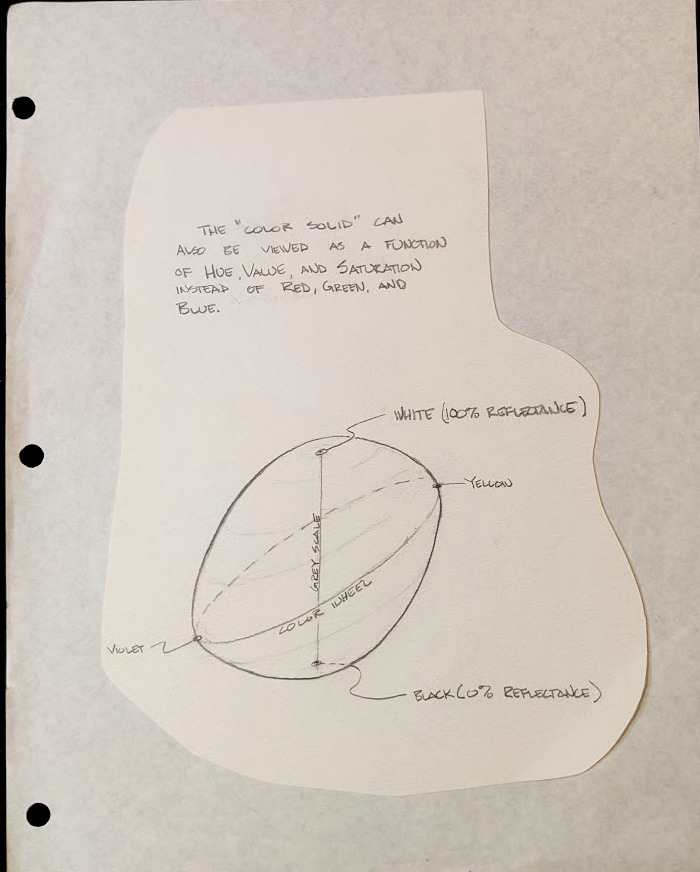 THE "COLOR SOLID" CAN
ALSO BE VIEWED AS A FUNCTION
OF HUE, VALUE, AND SATURATION
INSTEAD OF RED, GREEN, AND
BLUE.
WHITE (100% REFLECTANCE)
YELLOW
GREY SCALE
COLOR WHEEL
VIOLET
BLACK (0% REFLECTANCE)